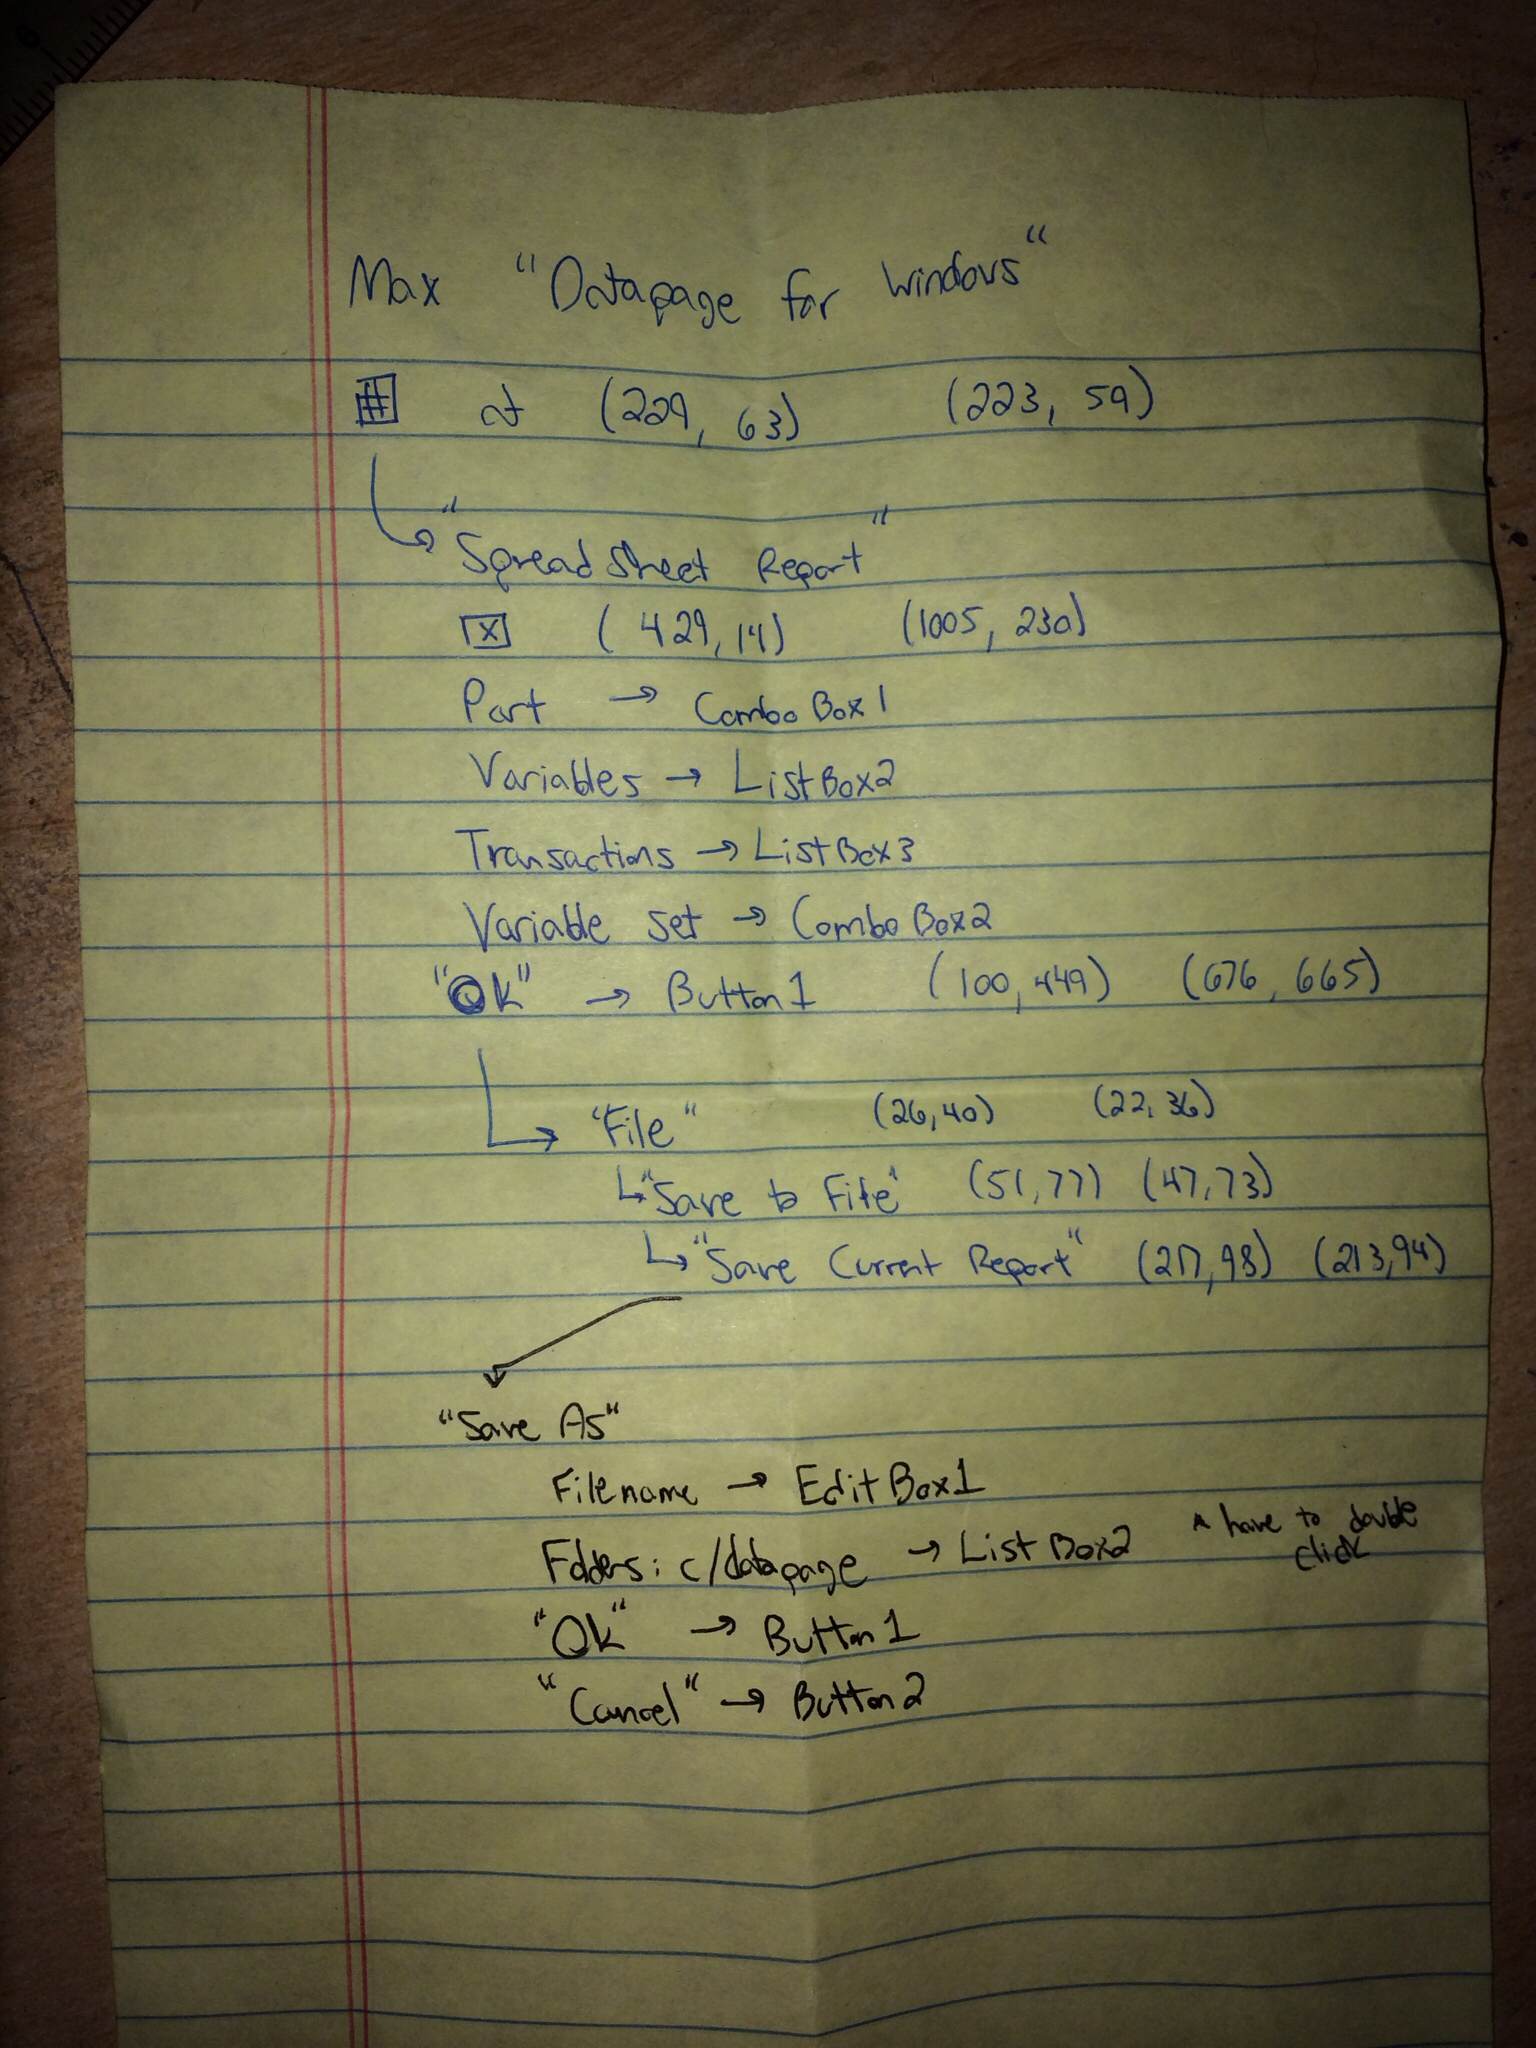 Max "Datapage for Windows"
# at (229, 63) (223, 59)
"Spreadsheet Report"
X (429, 14) (1005, 230)
Part → ComboBox1
Variables → ListBox2
Transactions → ListBox3
Variable Set → ComboBox2
"OK" → Button1 (100, 449) (676, 665)
"File" (26, 40) (22, 36)
"Save to File" (51, 77) (47, 73)
"Save Current Report" (217, 98) (213, 94)
"Save As"
Filename → EditBox1
Folders: c/datapage → ListBox2 * have to double
click
"Ok" → Button1
"Cancel" → Button2